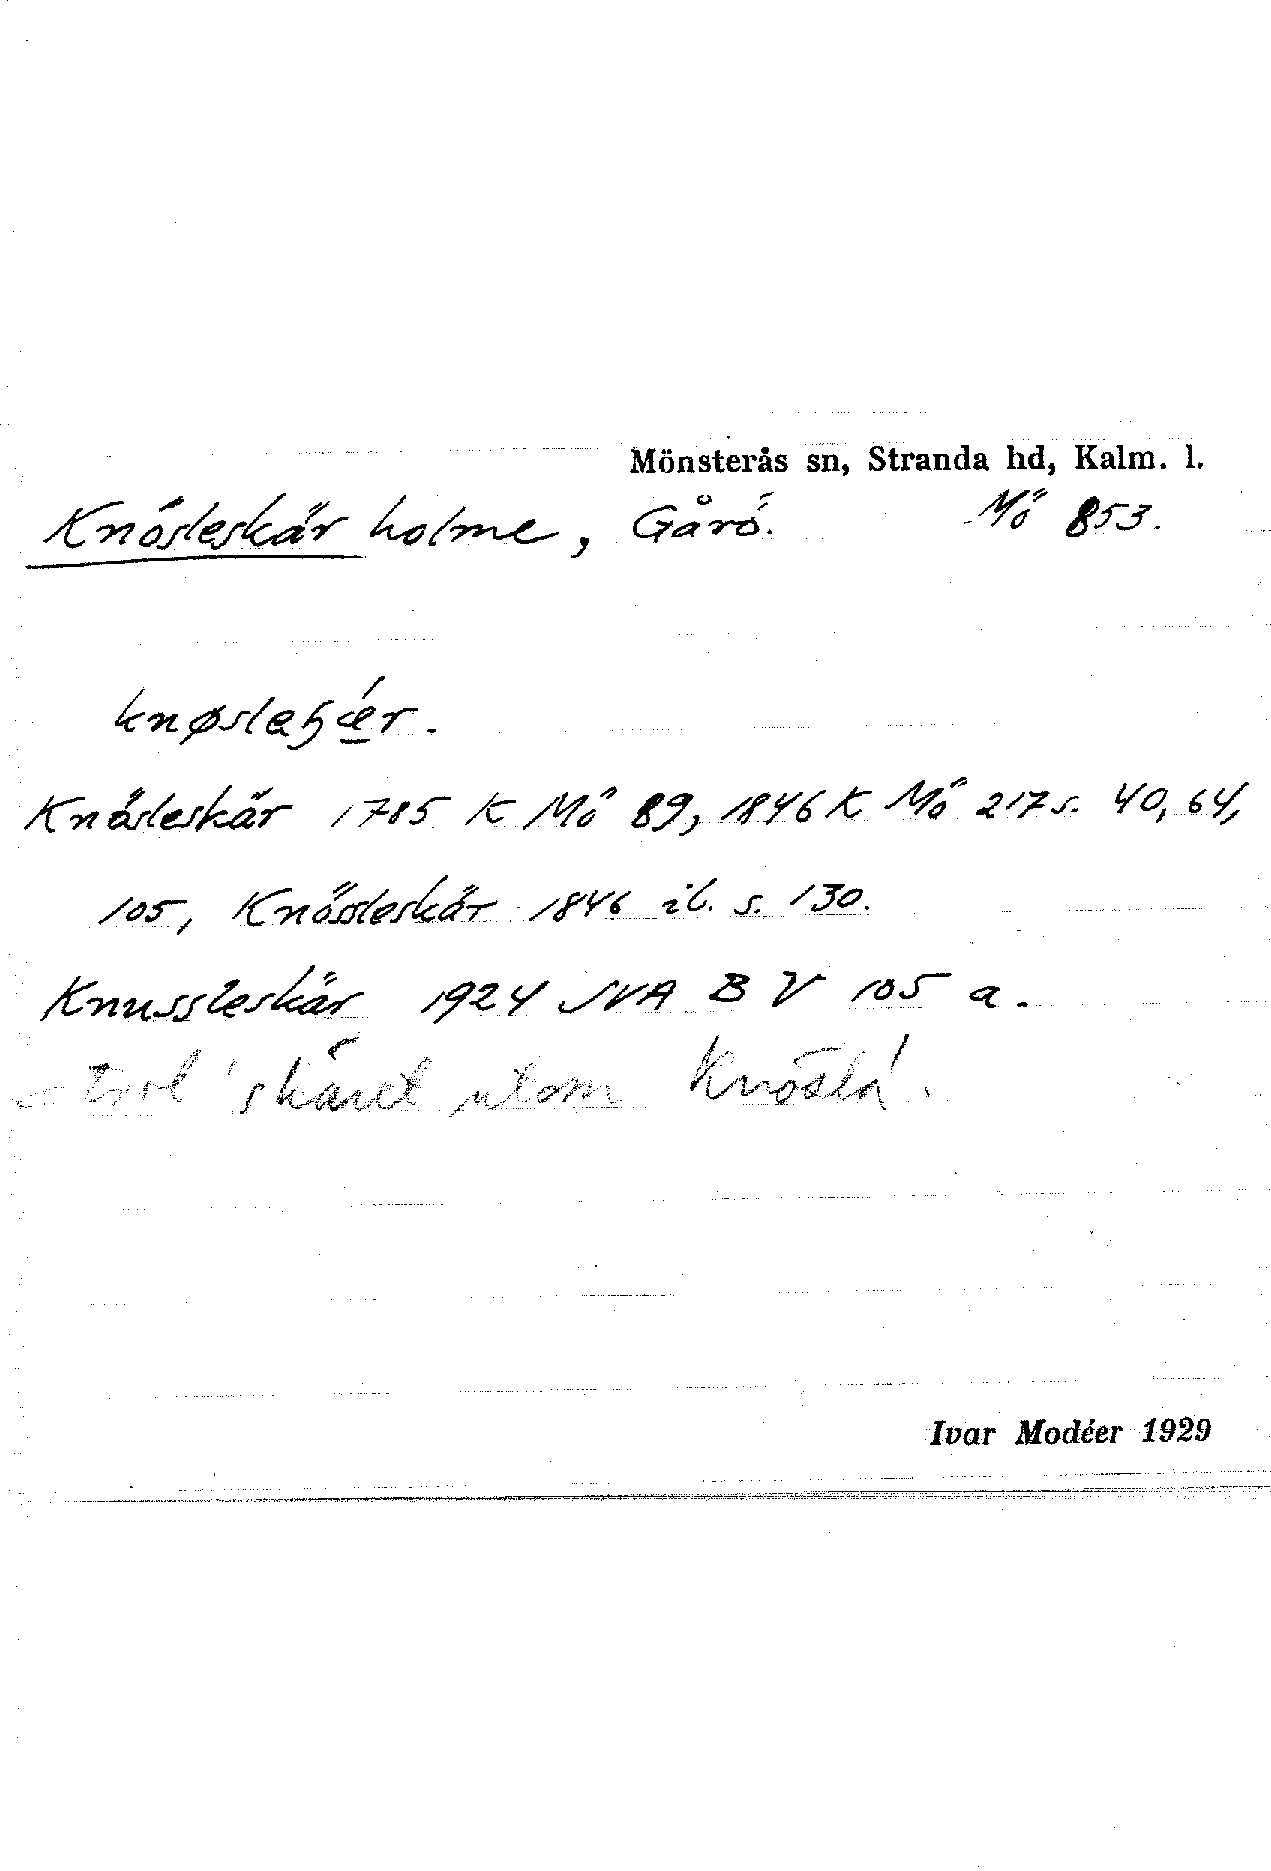 Mönsterås sn, Stranda hd, Kalm. l.
Knösleskär holme, Gårö. Mö 853.
knøsleꜧǽr.
Knåsleskär 1785 K Mö 89, 1846 K Mö 217 s. 40, 64,
105, Knössleskär 1846 ib. s. 130.
Knussleskär 1924 JVA B V 105 a.
trol 'skäret utom Knösla'.
Ivar Modéer 1929